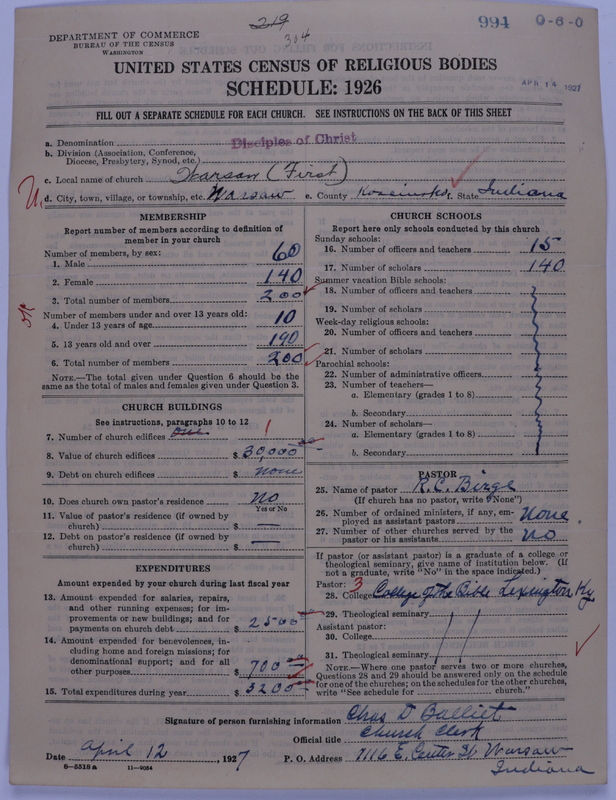 219
304
994 0-6-0
DEPARTMENT OF COMMERCE
BUREAU OF THE CENSUS
WASHINGTON
UNITED STATES CENSUS OF RELIGIOUS BODIES
SCHEDULE: 1926
APR 14 1927
FILL OUT A SEPARATE SCHEDULE FOR EACH CHURCH. SEE INSTRUCTIONS ON THE BACK OF THIS SHEET
a. Denomination Disciples of Christ
b. Division (Association, Conference,
Diocese, Presbytery, Synod, etc.)
c. Local name of church Warsaw (First)
d. City, town, village, or township, etc. Warsaw e. County Kosciusko f. State Indiana
MEMBERSHIP
Report number of members according to definition of
member in your church
Number of members, by sex:
1. Male 60
2. Female 140
3. Total number of members 200
Number of members under and over 13 years old:
4. Under 13 years of age 10
5. 13 years old and over 190
6. Total number of members 200
NOTE.—The total given under Question 6 should be
the same as the total of males and females given under Question 3.
CHURCH BUILDINGS
See instructions, paragraphs 10 to 12
7. Number of church edifices one 1
8. Value of church edifices $ 30,000
9. Debt on church edifices $ none
10. Does church own pastor's residence no
Yes or No
11. Value of pastor's residence (if owned by
church) $ —
12. Debt on pastor's residence (if owned by
church) $ —
EXPENDITURES
Amount expended by your church during last fiscal year
13. Amount expended for salaries, repairs,
and other running expenses; for im-
provements or new buildings; and for
payments on church debt $ 2500
14. Amount expended for benevolences, in-
cluding home and foreign missions; for
denominational support; and for all
other purposes $ 700
15. Total expenditures during year $ 3200
CHURCH SCHOOLS
Report here only schools conducted by this church
Sunday schools:
16. Number of officers and teachers 15
17. Number of scholars 140
Summer vacation Bible schools:
18. Number of officers and teachers
19. Number of scholars
Week-day religious schools:
20. Number of officers and teachers
21. Number of scholars
Parochial schools:
22. Number of administrative officers
23. Number of teachers—
a. Elementary (grades 1 to 8)
b. Secondary
24. Number of scholars—
a. Elementary (grades 1 to 8)
b. Secondary
PASTOR
25. Name of pastor R. C. Birge
(If church has no pastor, write "None")
26. Number of ordained ministers, if any, em-
ployed as assistant pastors None
27. Number of other churches served by the
pastor or his assistants no
If pastor (or assistant pastor) is a graduate of a college or
theological seminary, give name of institution below. (If
not a graduate, write "No" in the space indicated.)
Pastor: 3
28. College College of the Bible Lexington Ky
29. Theological seminary
Assistant pastor:
30. College
31. Theological seminary
NOTE.—Where one pastor serves two or more churches,
Questions 28 and 29 should be answered only on the schedule
for one of the churches; on the schedules for the other churches,
write "See schedule for church."
Signature of person furnishing information Chas D Balliet
Official title Church Clerk
Date April 12, 1927 P. O. Address 1116 E. Center St Warsaw
Indiana
8-5518a 11-9064